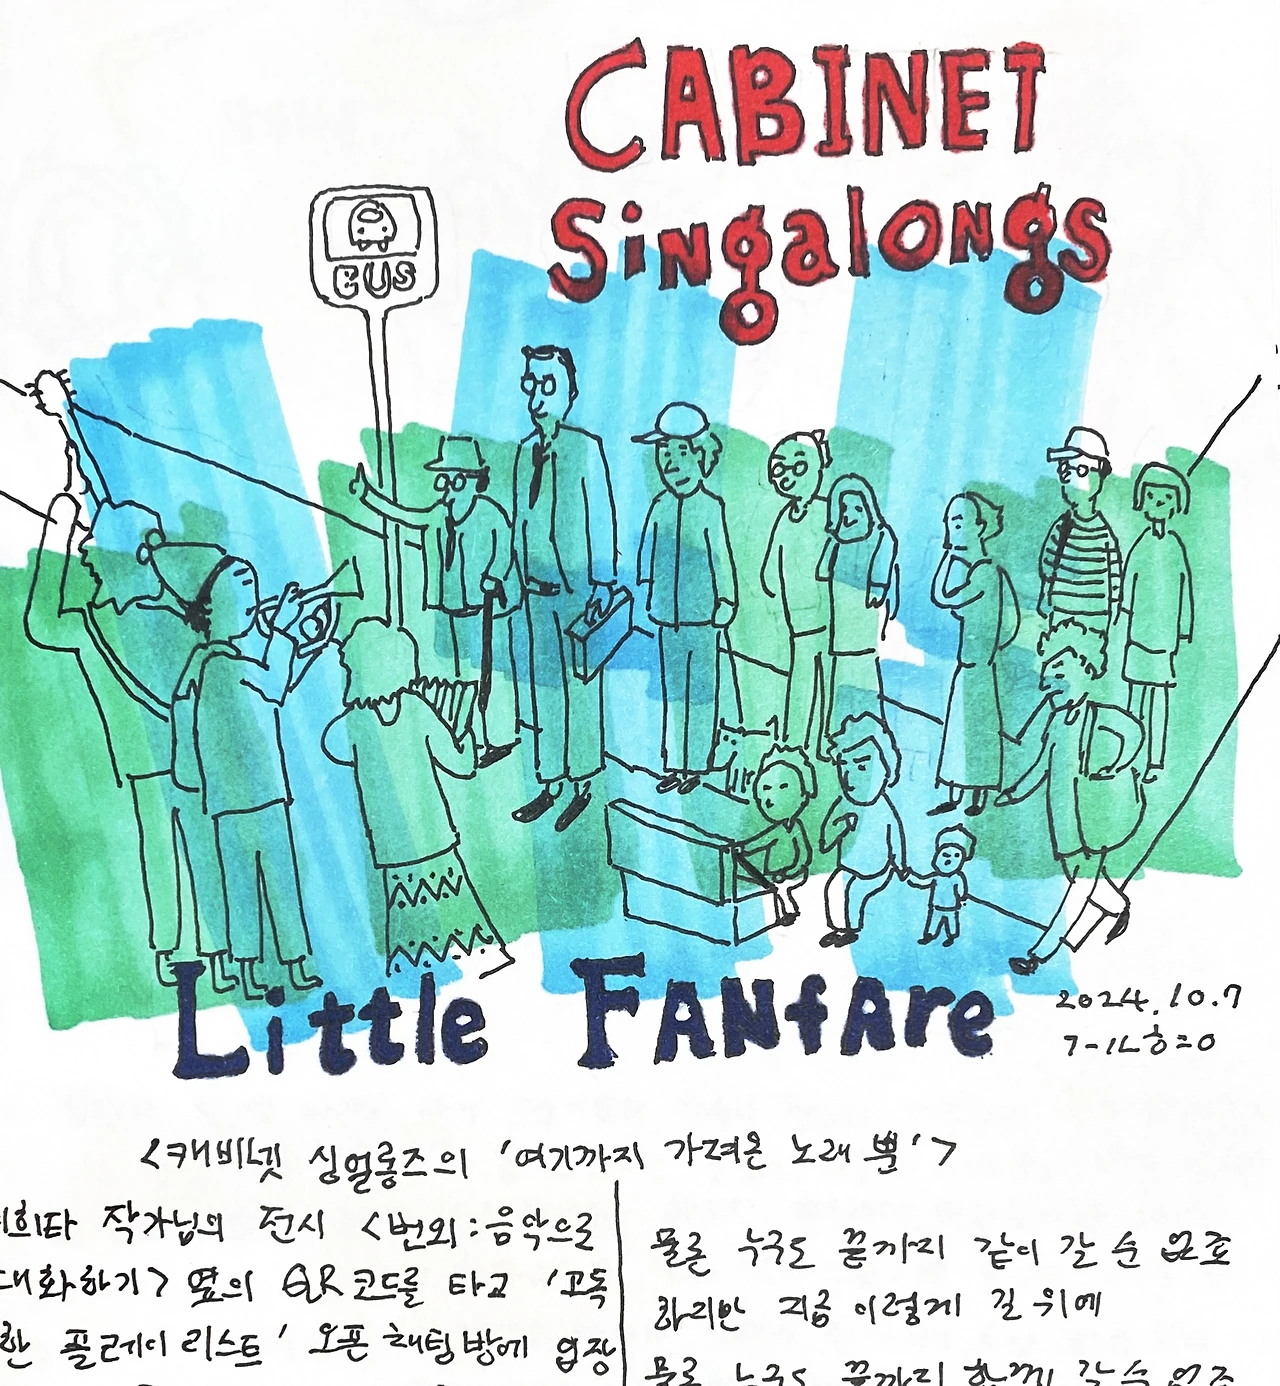 CABINET
Singalongs
BUS
Little FANfARe
2024.10.7
<캐비넷 싱얼롱즈의 '여기까지 가져온 노래 뿐'>
작가님의 전시 <번외:음악으로
대화하기> 옆의 QR코드를 타고 '고독
한 플레이리스트' 오픈채팅방에 입장
물론 누구도 끝까지 같이 갈 순 없죠
하지만 지금 이렇게 길 위에
물론 누구도 끝까지 함께 갈 수 없죠